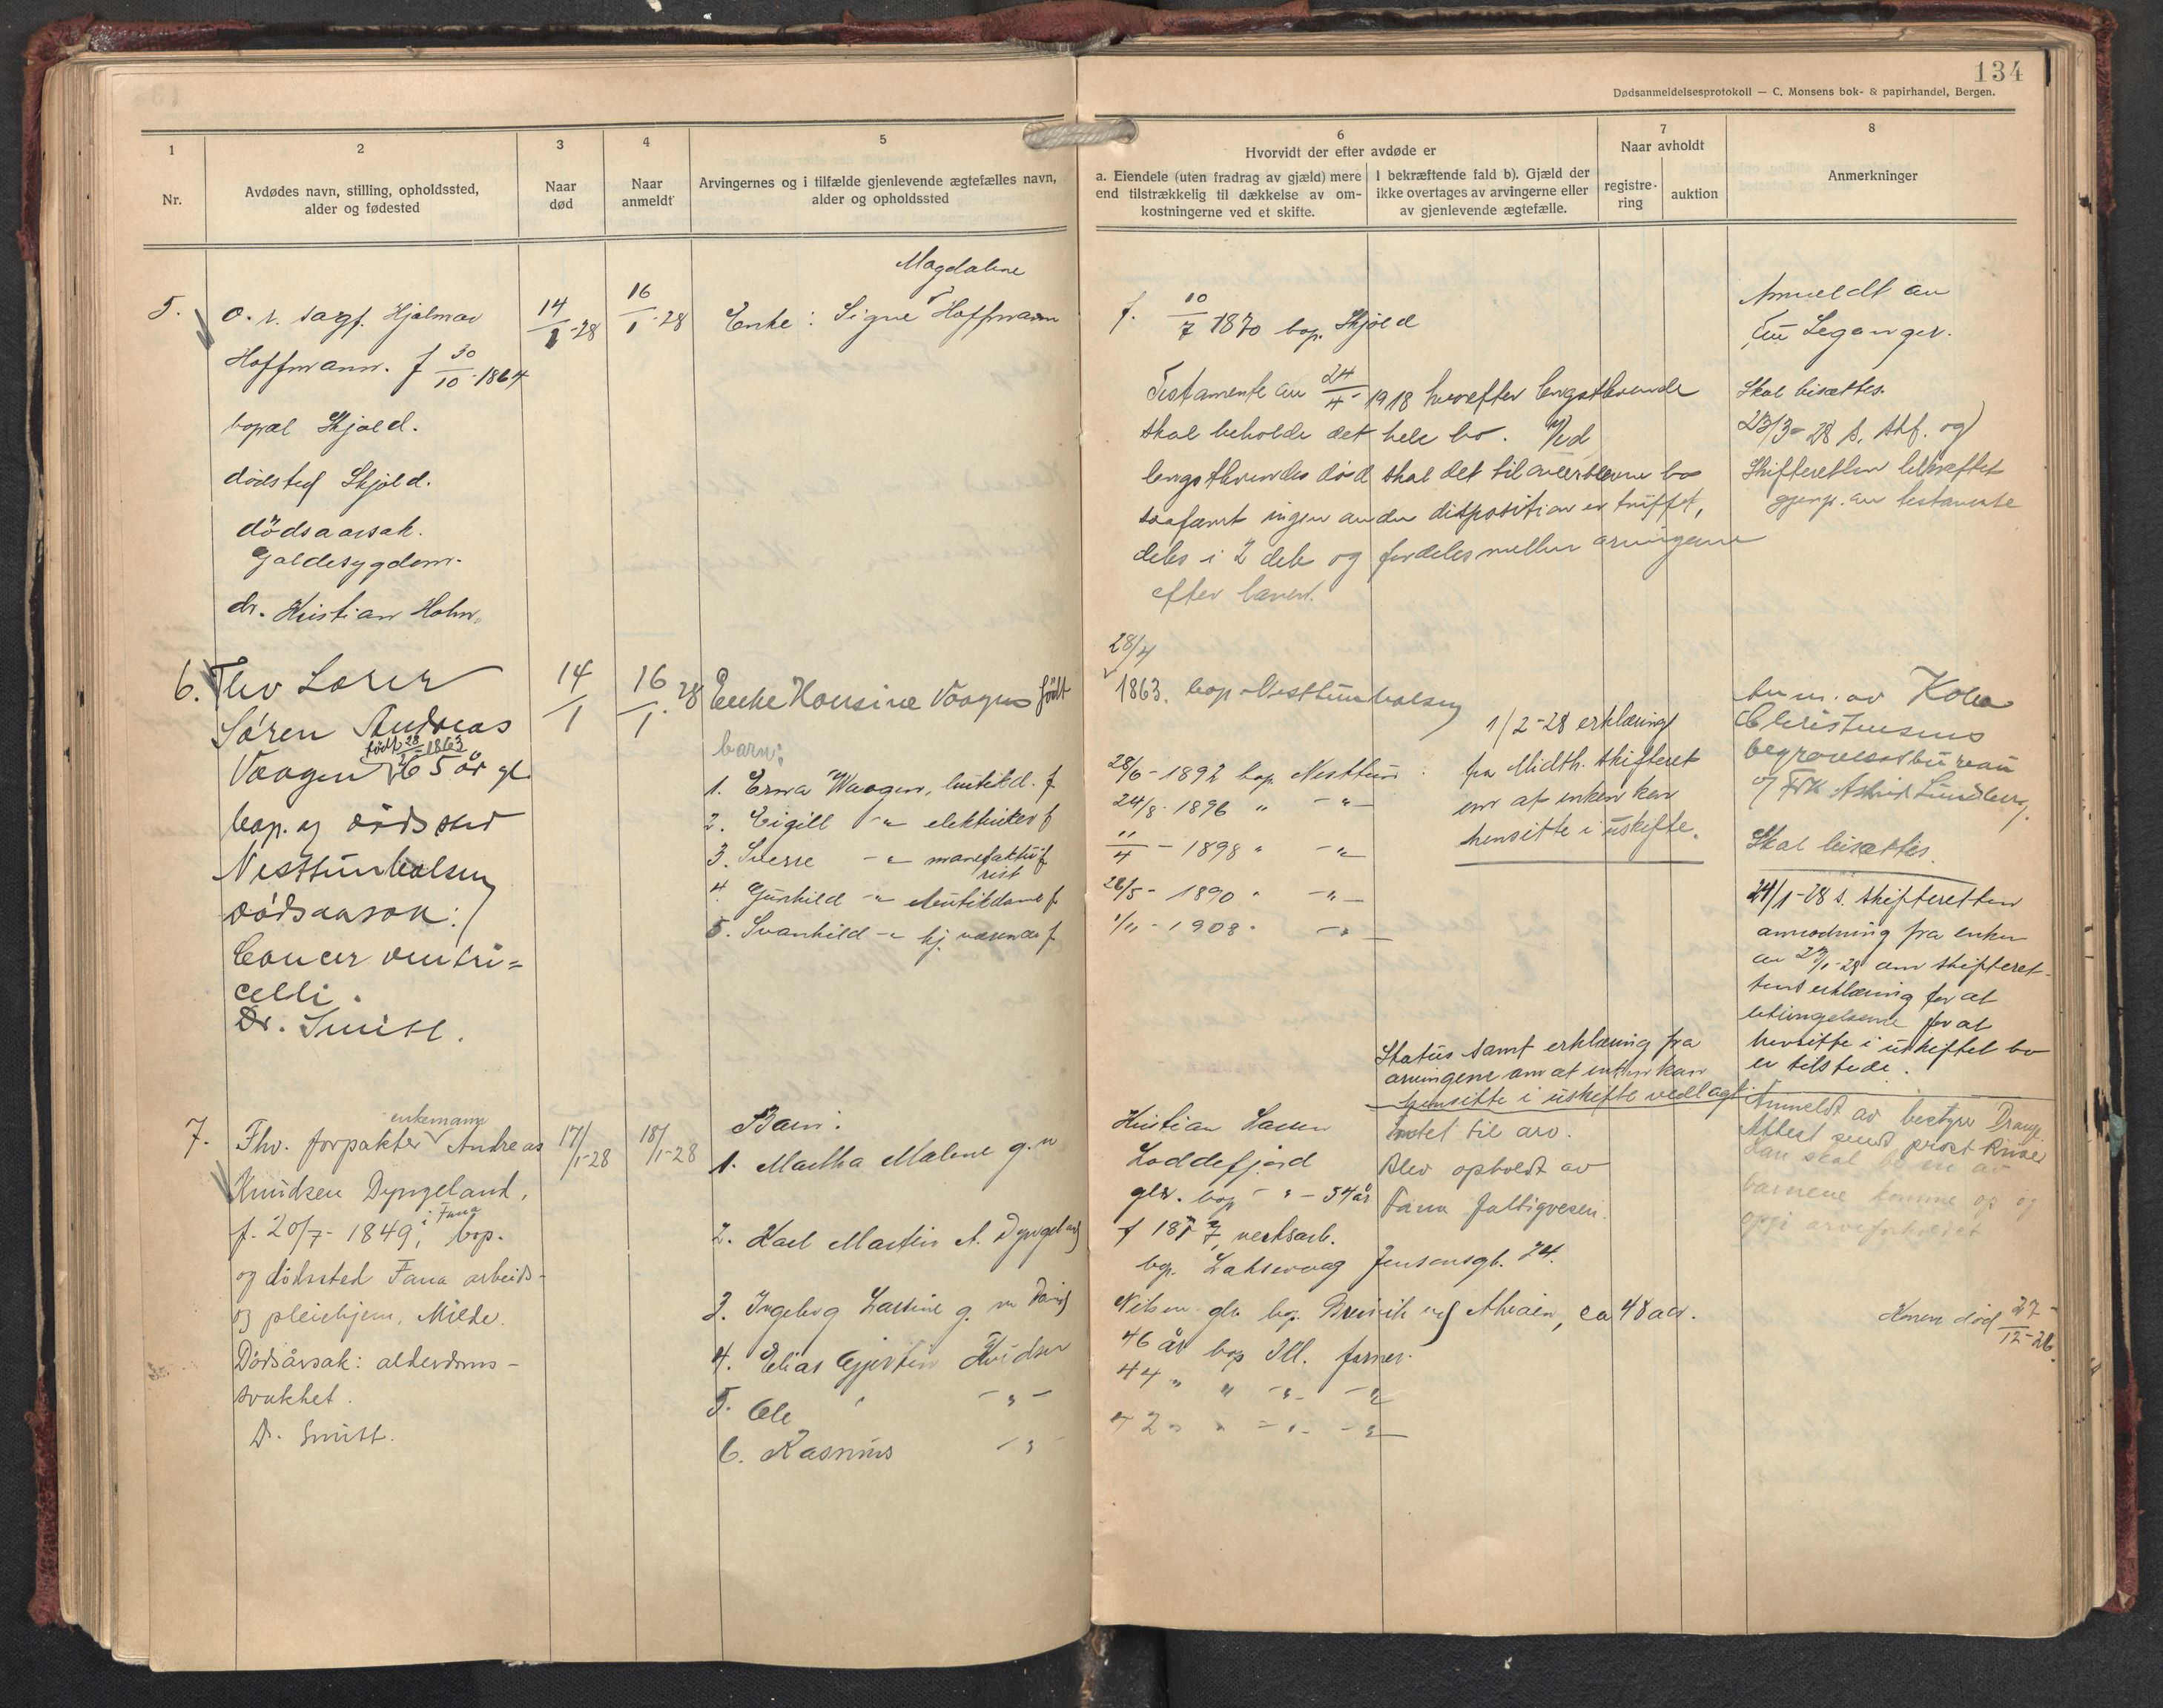 134
Dødsanmeldelsesprotokoll — C. Monsens bok- & papirhandel, Bergen.
1
Nr.
2
Avdødes navn, stilling, opholdssted,
alder og fødested
3
Naar
død
4
Naar
anmeldt
5
Arvingernes og i tilfælde gjenlevende ægtefælles navn,
alder og opholdssted
6
Hvorvidt der efter avdøde er
a. Eiendele (uten fradrag av gjæld) mere
end tilstrækkelig til dækkelse av om-
kostningerne ved et skifte.
I bekræftende fald b). Gjæld der
ikke overtages av arvingerne eller
av gjenlevende ægtefælle.
7
Naar avholdt
registre-
ring
auktion
8
Anmerkninger
5.
o.r. sagf. Hjalmar
Hoffmann. f 30/10-1864
bopæl Skjold.
dødsted Skjold.
dödsaarsak.
Galdesygdom.
dr. Kristian Holm.
14/1-28
16/1-28
Magdalene
Enke: Signe Hoffmann
f. 10/7 1870 bop. Skjold
Testamente av 24/4-1918 hvorefter lengstlevende
skal beholde det hele bo. Ved
lengstlevendes død skal det tiloversblevne bo
saafremt ingen anden disposition er truffet,
deles i 2 dele og fordeles mellem arvingerne
efter loven.
Anmeldt av
Leganger.
Skal bisættes.
23/3-28 s. skf. og
Skifteretten bekræftet
gjenp. av testamente
6.
Søren Andreas
Vaagen 65 år gl.
født 28/1-1863
bop. og dødssted
Nesttunkalsen
dødsaarsak:
Cancer ventri=
celli.
Dr. Smitt.
14/1
16/1.28
Enke Hansine Vaagen født
28/4
1863. bop Nesttunkalsen
barn:
1. Erna Waagen, butikd. f.
28/6-1892 bop. Nesttun
2. Eigill -"- elektriker f
24/8-1896 " -"-
3. Sverre -"- manufaktu f.
rist
11/4-1898 " -"-
4. Gunhild -"- butikdame f.
26/5-1890 " -"-
5. Svanhild -"- hj. værende f.
1/11-1908 " -"-
1/2-28 erklæring
fra Midth. skifteret
om at enken kan
hensitte i uskifte.
Anm. av
Christensens
begravelsesbureau
og Frk Astrid Lundberg.
Skal bisættes.
24/1-28 s. skifteretten
anmodning fra enken
av 23/1-28 om skifteret-
tens erklæring for at
betingelserne for at
hensitte i uskiftet bo
er tilstede.
Status samt erklæring fra
arvingene om at enken kan
hensitte i uskifte vedlagt.
7.
enkemann
Fhv. forpakter Andreas
Knudsen Dyngeland,
f. 20/7-1849, i Fana bop.
og dødssted Fana arbeids-
og pleiehjem, Milde.
Dødsårsak: alderdoms-
svakhet.
Dr. Smitt.
17/1-28
18/1-28
Barn:
1. Martha Malene g.m.
Kristian Larsen
Loddefjord
gld. bop -"- 54 år
2. Karl Martin A. Dyngeland
f 1877, verksarb.
bop. Laksevaag Jensensgt. 24.
3. Ingeborg Lastine g. m David
Nilsen glr. bop. Breivik ved Alvøen, ca 48 aar.
4. Elias Gjertin Knudsen
46 år bop Ill. farmer.
5. Ole " -"-
44 " " -"- -"-
6. Rasmus -"-
42 " " -"- -"-
Intet til arv.
Blev opholdt av
Fana fattigvesen.
Anmeldt av bestyrer Drange
Attest sendt prost Riiser
barnene komme op og
Konen død 27/12-26.